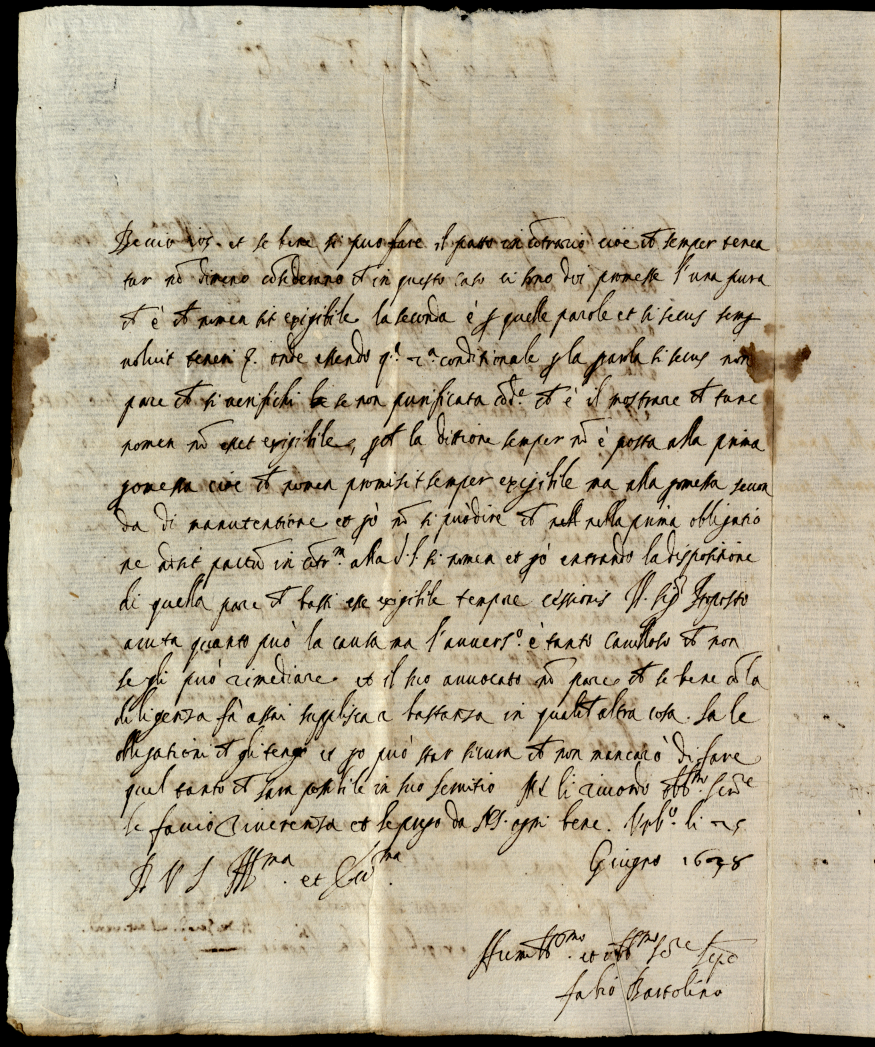 Beccio 105. et se bene si può fare il patto in cõtrario cioè ch̃ semper tenea
tur nõ dimeno cõsiderano ch̃ in questo caso ci sono doi promesse l'una pura
ch̃ è ch̃ nomen sit exigibile. la seconda è p quelle parole et si secus semp
voluit teneri &. onde essendo q.ᵃ 2ᵃ conditionale p la parola si secus non
pare ch̃ si verifichi se non purificata cõd.ᵉ ch̃ è il mostrare ch̃ tunc
nomen nõ esset exigibile, pch̃ la dittione semper nõ è posta alla prima
promessa cioè ch̃ nomen promisit semper exigibile ma alla promessa secon
da di manutentione et pò nõ si può dire ch̃ nella prima obligatio
ne adsit pactũ in cõtr.ᵐ alla l. si nomen et pò entrando la dispositione
di quella pare ch̃ basti esse exigibile tempore cessionis Il Sig.ʳ Ipposto
aiuta quanto può la causa ma l'avvers.º è tanto cavilloso ch̃ non
se gli può rimediare et il suo avvocato nõ pare ch̃ se bene cõ la
diligenza fà assai supplisca a bastanza in qualch̃ altra cosa. Sa le
obligationi ch̃ gli tengo et pò può star sicura ch̃ non mancarò di fare
quel tanto ch̃ sarà possibile in suo servitio li ricordo obb.ᵐᵒ Ser.ʳᵉ
le faccio riverenza et le prego da ogni bene. Urb.º li 25
Giugno 1638
D V S Ill.ᵐᵃ et Ecc.ᵐᵃ
Humil.ᵐᵒ et obb.ᵐᵒ S.ʳᵉ
Fabio Bartolino